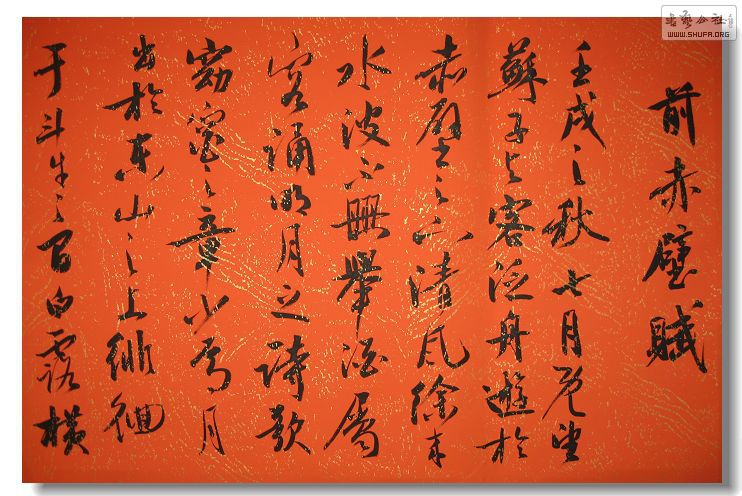 前赤壁賦
壬戌之秋七月既望
蘇子与客泛舟遊於
赤壁之下清风徐来
水波不興舉酒屬
客誦明月之詩歌
窈窕之章少焉月
出於東山之上徘徊
于斗牛之間白露橫
WWW.SHUFA.ORG